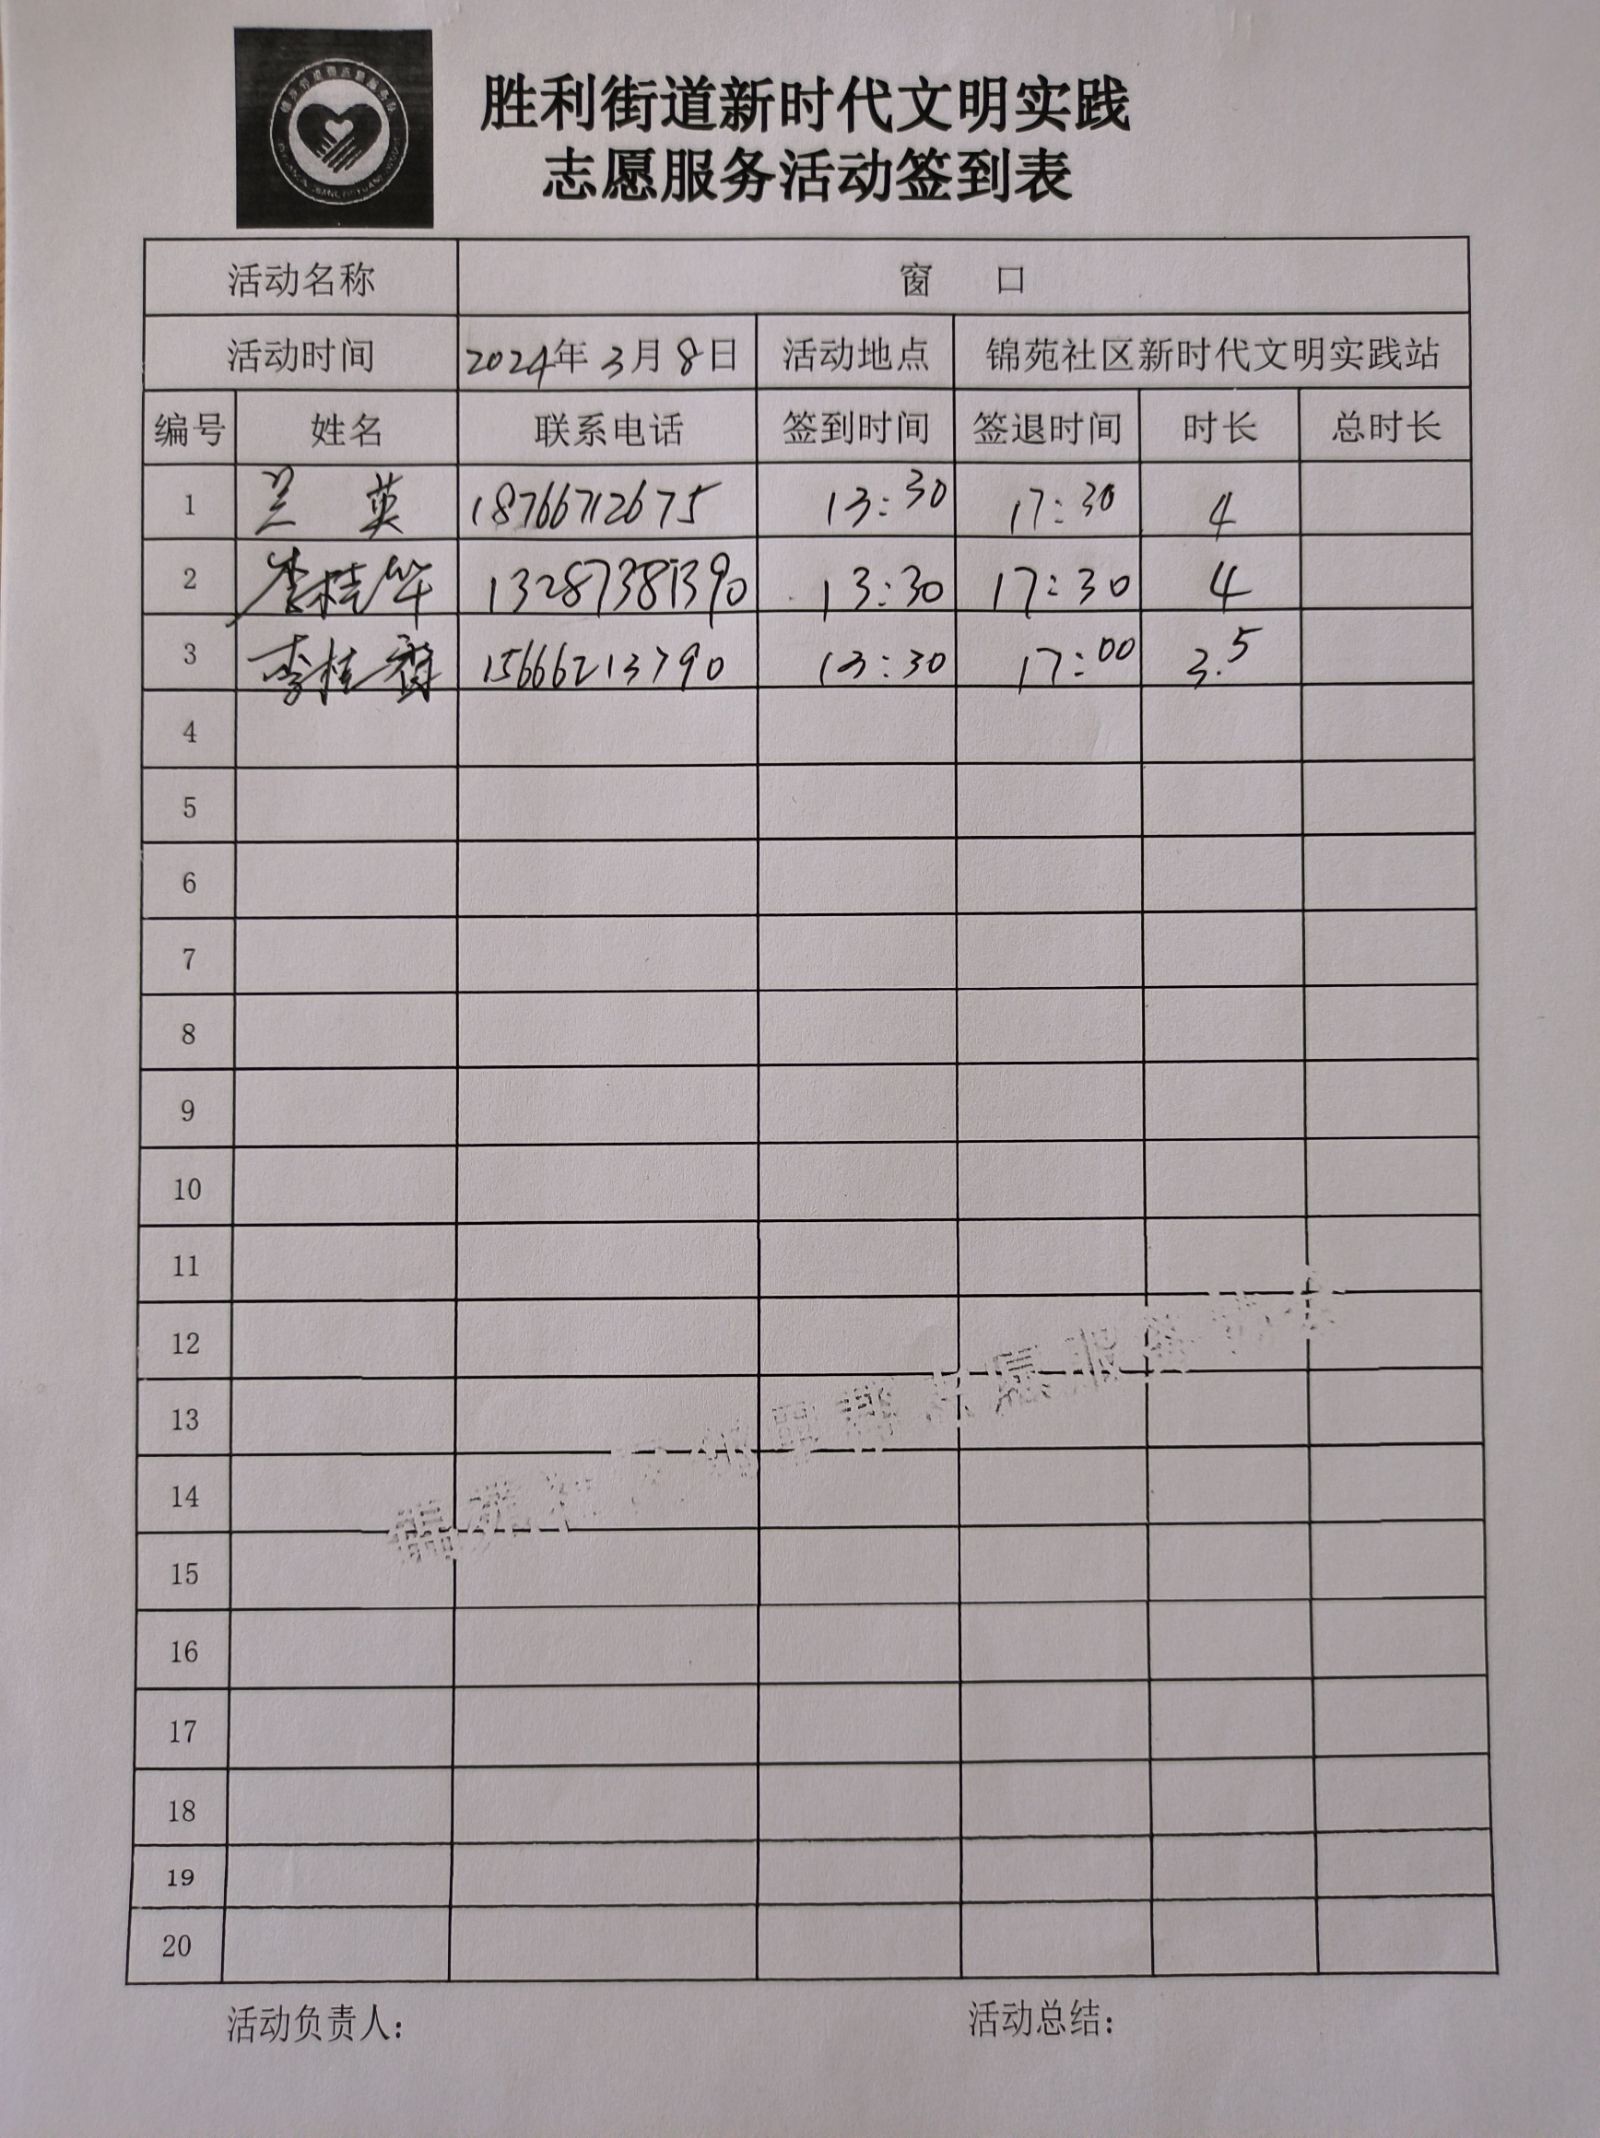 胜利街道新时代文明实践
志愿服务活动签到表
活动名称 窗 口
活动时间 2024年3月8日 活动地点 锦苑社区新时代文明实践站
编号 姓名 联系电话 签到时间 签退时间 时长 总时长
1 兰英 18766712675 13:30 17:30 4
2 李桂华 13287381390 13:30 17:30 4
3 李桂香 15666213790 13:30 17:00 3.5
4
5
6
7
8
9
10
11
12
13
14
15
16
17
18
19
20
活动负责人: 活动总结: